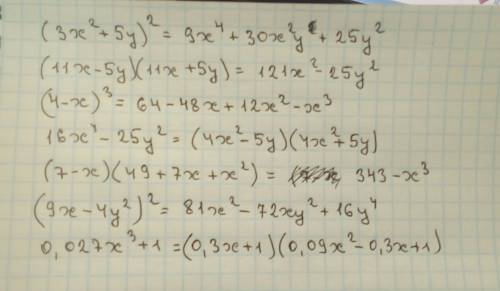 (3x²+5y)² = 9x⁴ + 30x²y + 25y²
(11x-5y)(11x+5y) = 121x² - 25y²
(4-x)³ = 64 - 48x + 12x² - x³
16x⁴ - 25y² = (4x² - 5y)(4x² + 5y)
(7-x)(49 + 7x + x²) = 343 - x³
(9x - 4y²)² = 81x² - 72xy² + 16y⁴
0,027x³ + 1 = (0,3x+1)(0,09x² - 0,3x+1)